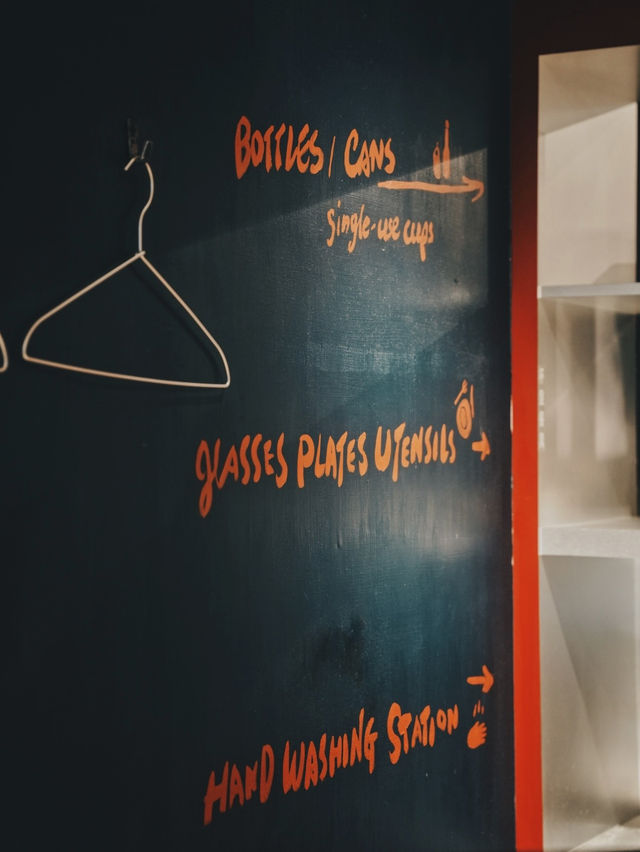 BOTTLES / CANS
single-use cups
GLASSES PLATES UTENSILS
HAND WASHING STATION